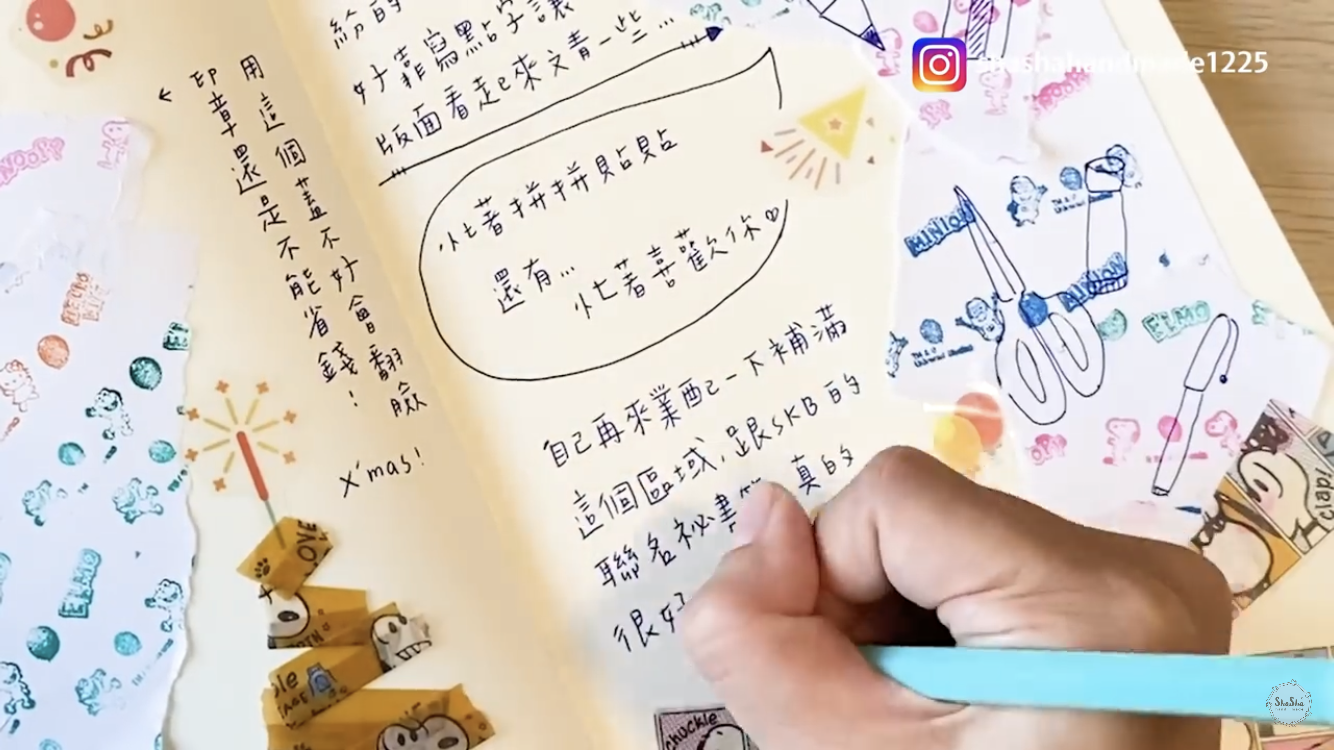 用這個蓋不好會翻臉
印章還是不能省錢!
←
X'mas!
紛的
好靠寫點字讓
版面看起來文青一些...
忙著拼拼貼貼
還有...
忙著喜歡你♡
自己再來業配一下補滿
這個區域,跟SKB的
聯名祕書筆 真的
很好
MINION
MINION
ELMO
ELMO
SNOOPY
HELLO
LOVE
clap!
chuckle
ShaSha